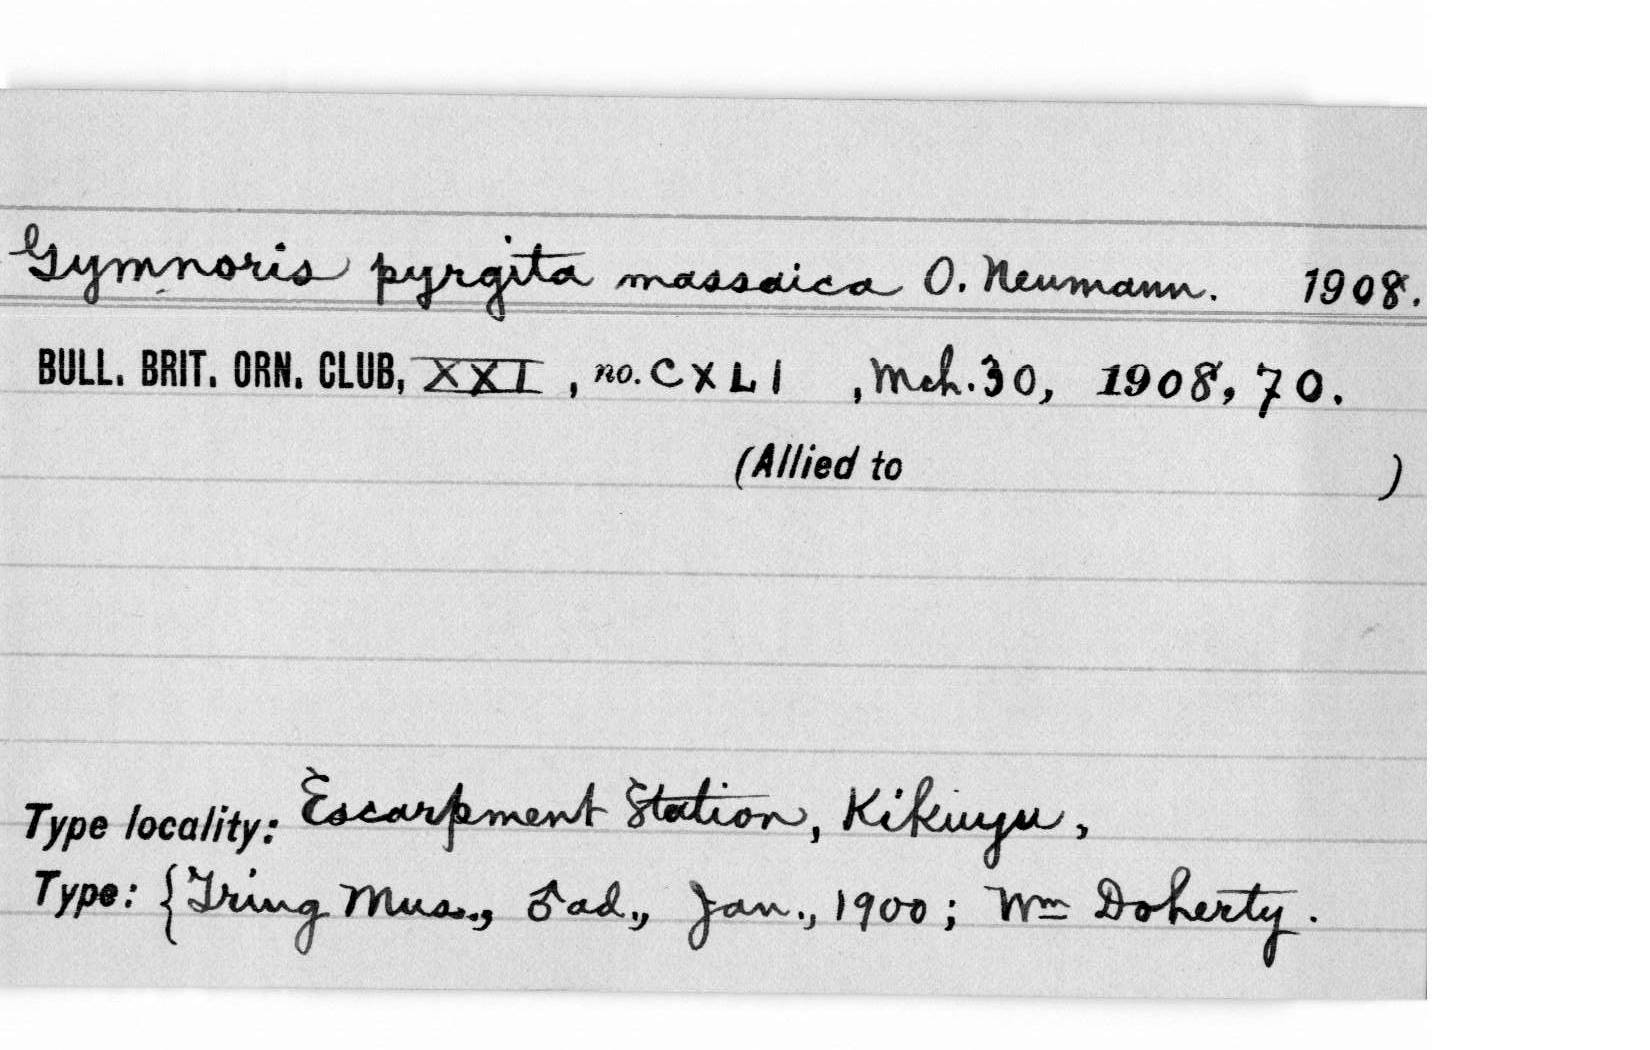 Gymnoris pyrgita massaica O. Neumann. 1908.
BULL. BRIT. ORN. CLUB, XXI, no. CXLI, Mch. 30, 1908, 70.
(Allied to )
Type locality: Escarpment Station, Kikuyu,
Type: {Tring Mus., ♂ ad., Jan., 1900; Wm Doherty.